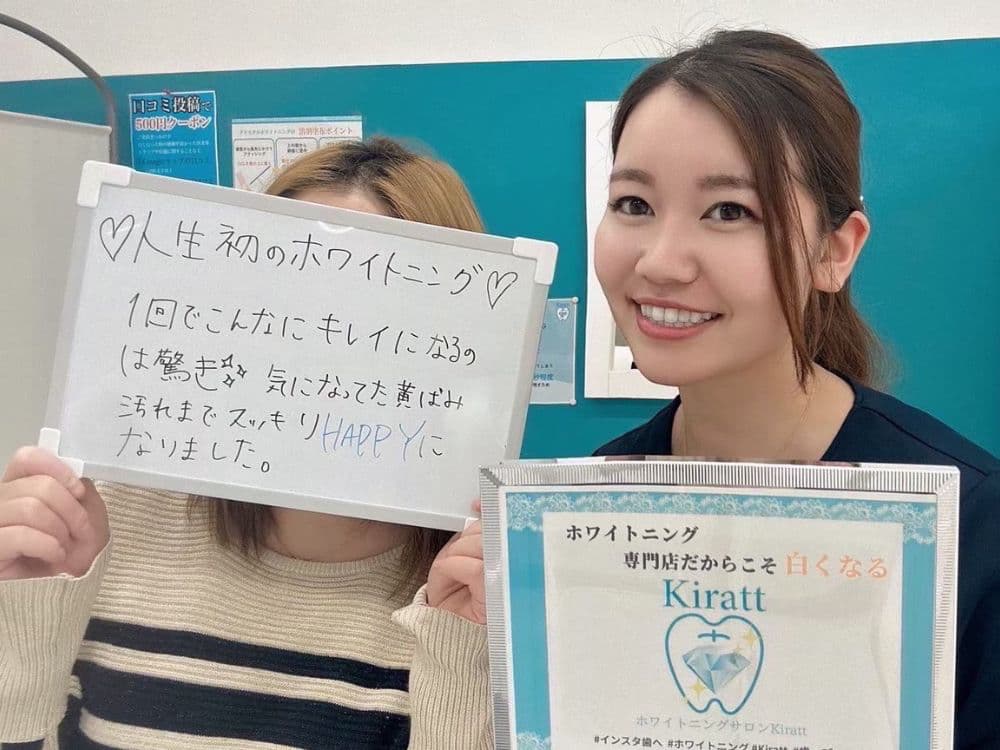 口コミ投稿で
500円クーポン
♡人生初のホワイトニング♡
1回でこんなにキレイになるの
は驚き 気になってた黄ばみ
汚れまでスッキリHAPPYに
なりました。
ホワイトニング
専門店だからこそ白くなる
Kiratt
ホワイトニングサロンKiratt
#インスタ歯へ #ホワイトニング #Kiratt